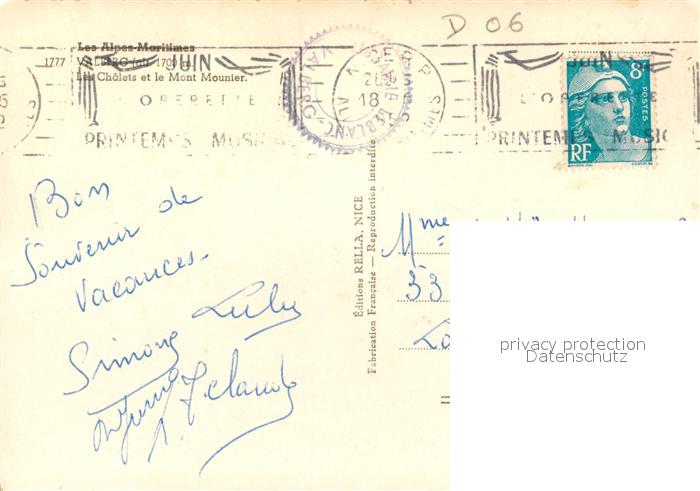 D 06
Les Alpes-Maritimes
1777 VALBERG (alt. 1700 m.)
Les Châlets et le Mont Mounier.
JUIN
OPERETTE
PRINTEMPS MUSICAL
18
JUIN
OPERETTE
PRINTEMPS MUSIC
8F
POSTES
RF
Bon
Souvenir de
Vacances.
Lulu
Simone
Claude
Éditions RELLA, NICE
Fabrication Française — Reproduction interdite
Mme
53
privacy protection
Datenschutz